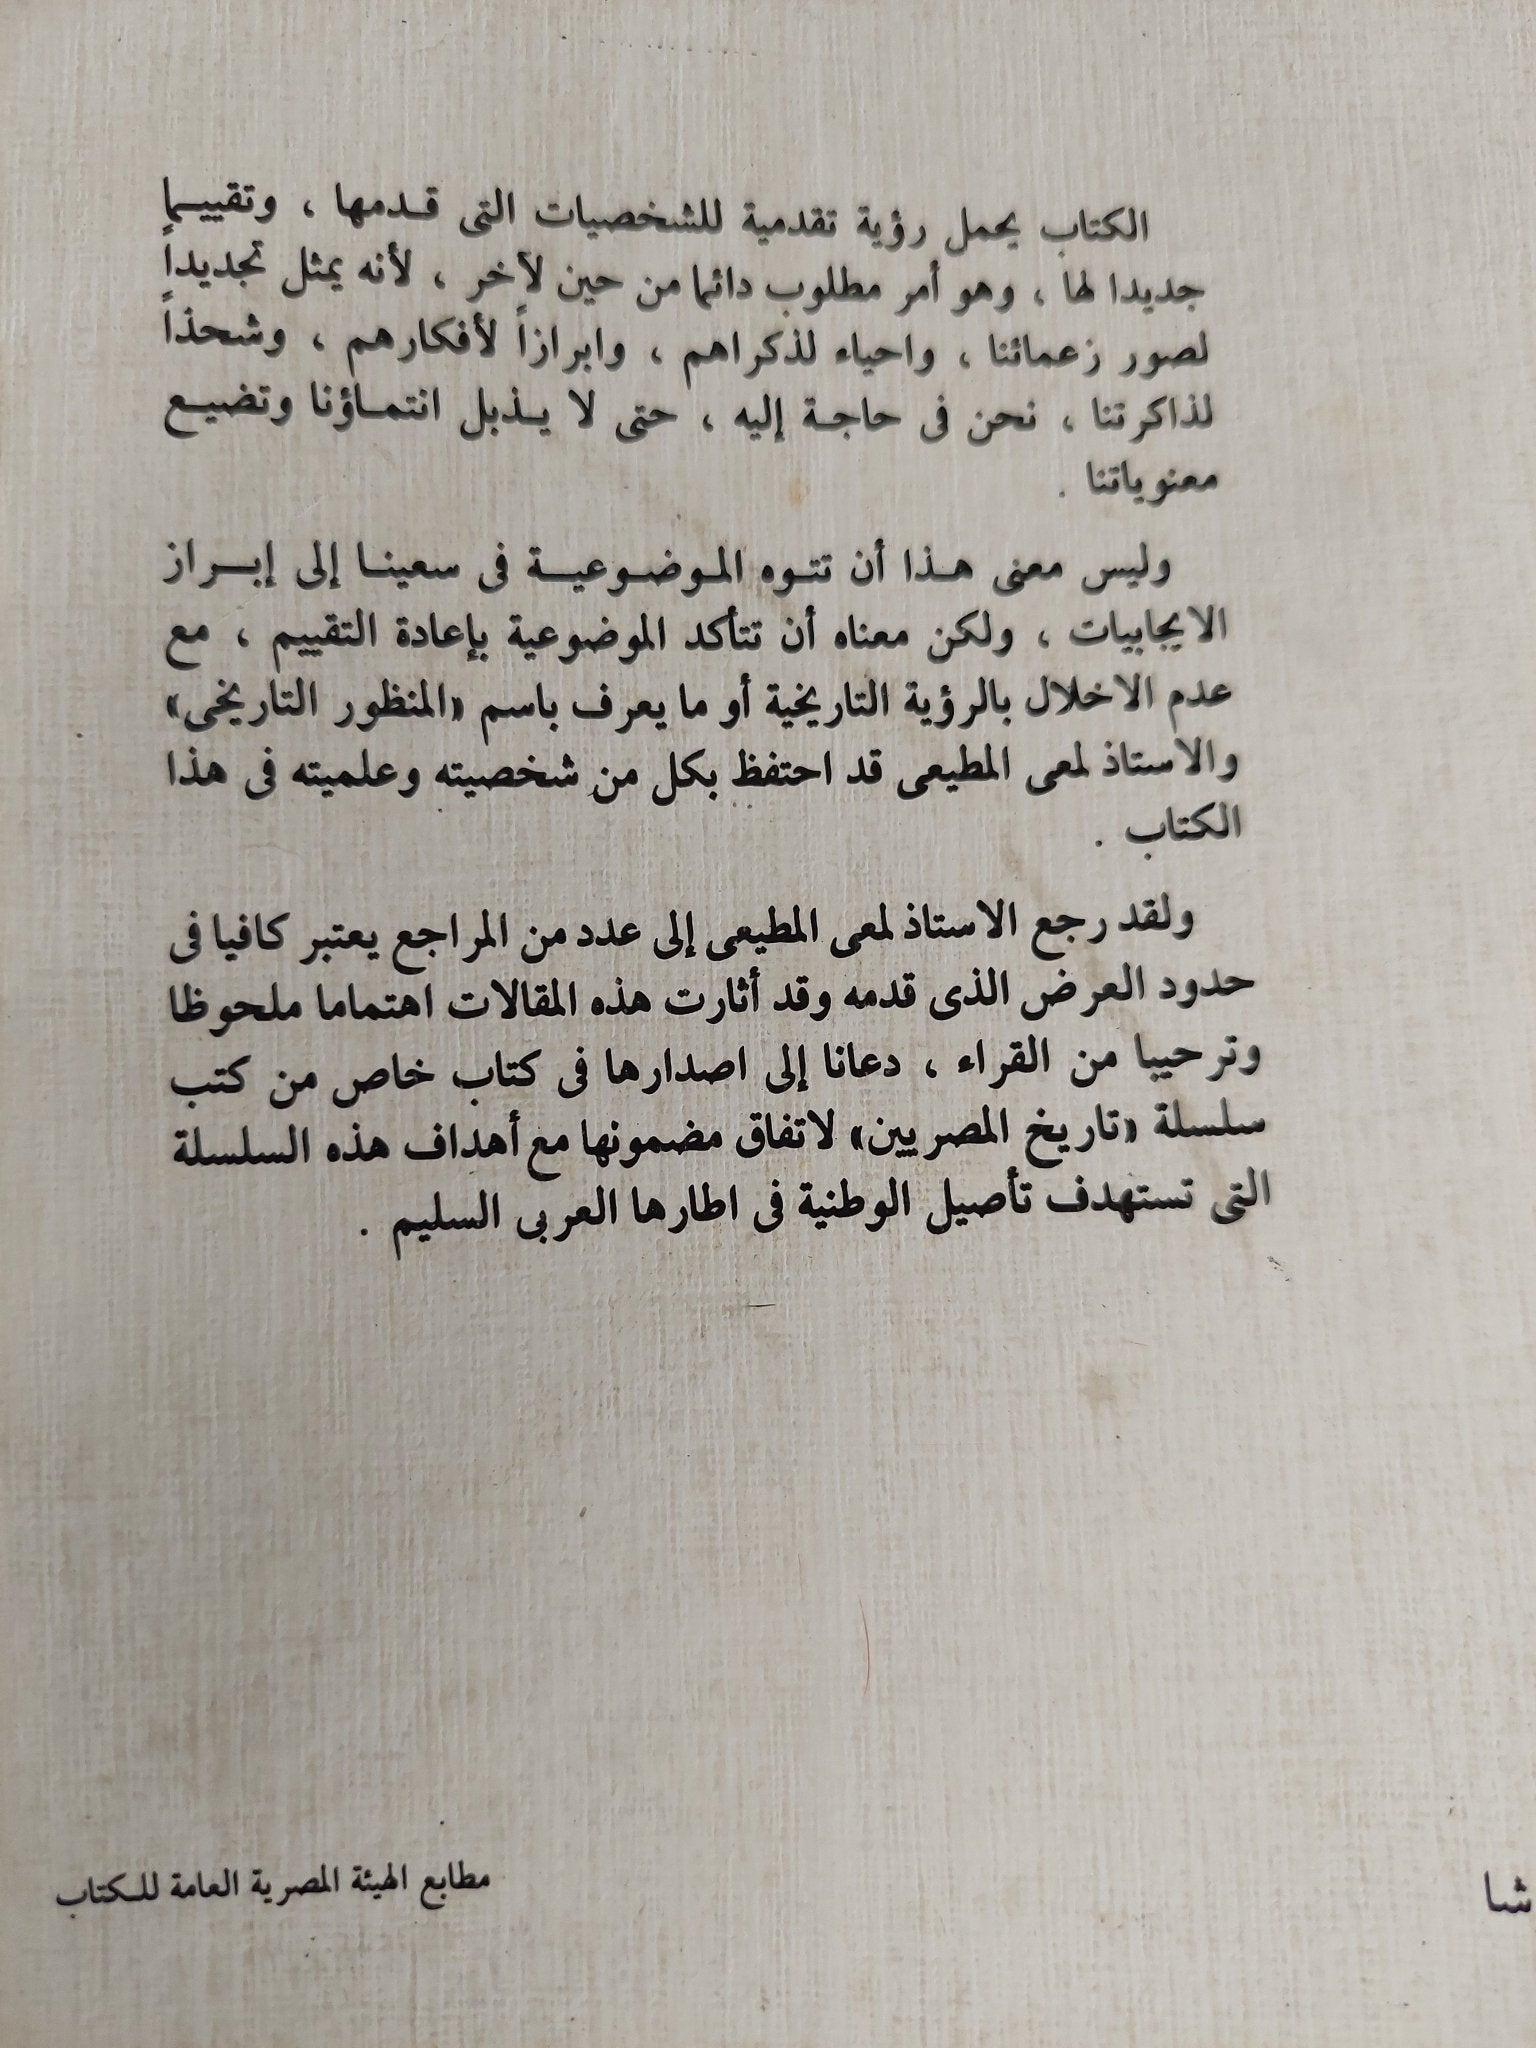 الكتاب يحمل رؤية تقدمية للشخصيات التى قدمها ، وتقييما
جديدا لها ، وهو أمر مطلوب دائما من حين لآخر ، لأنه يمثل تجديداً
لصور زعمائنا ، واحياء لذكراهم ، وابرازاً لأفكارهم ، وشحذاً
لذاكرتنا ، نحن فى حاجة إليه ، حتى لا يذبل انتماؤنا وتضيع
معنوياتنا .
وليس معنى هذا أن تتوه الموضوعية فى سعينا إلى إبراز
الايجابيات ، ولكن معناه أن تتأكد الموضوعية بإعادة التقييم ، مع
عدم الاخلال بالرؤية التاريخية أو ما يعرف باسم «المنظور التاريخى»
والاستاذ لمعى المطيعى قد احتفظ بكل من شخصيته وعلميته فى هذا
الكتاب .
ولقد رجع الاستاذ لمعى المطيعى إلى عدد من المراجع يعتبر كافيا فى
حدود العرض الذى قدمه وقد أثارت هذه المقالات اهتماما ملحوظا
وترحيبا من القراء ، دعانا إلى اصدارها فى كتاب خاص من كتب
سلسلة «تاريخ المصريين» لاتفاق مضمونها مع أهداف هذه السلسلة
التى تستهدف تأصيل الوطنية فى اطارها العربى السليم .
مطابع الهيئة المصرية العامة للكتاب